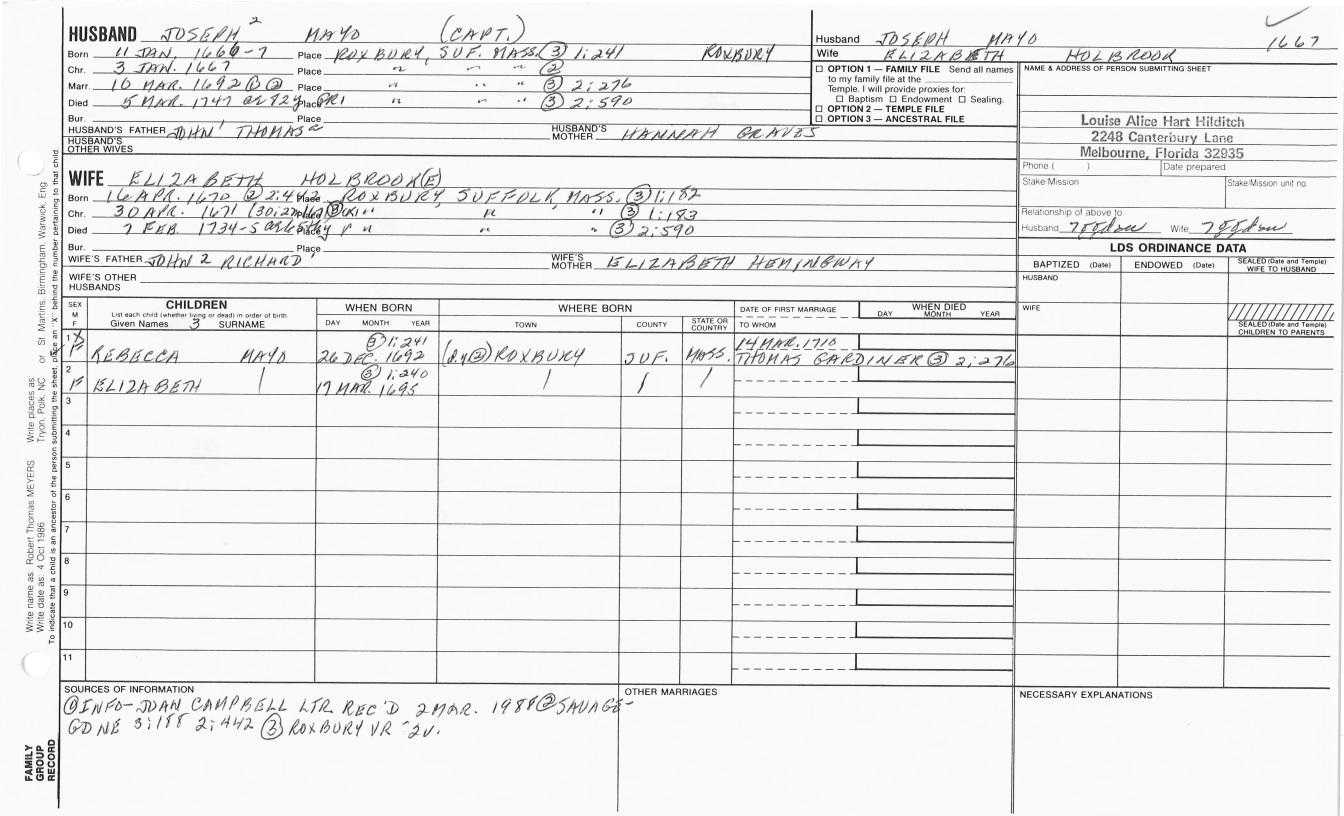 HUSBAND JOSEPH 2 MAYO (CAPT.)
Born 11 JAN. 1666-7 Place ROXBURY, SUF. MASS. ③ 1:241 ROXBURY
Chr. 3 JAN. 1667 Place " " " ②
Marr. 10 MAR. 1692 ① ② Place " " " ③ 2:276
Died 5 MAR. 1747 ae 72y Place GR1 " " " ③ 2:590
Bur. Place
HUSBAND'S FATHER JOHN 1 THOMAS a HUSBAND'S MOTHER HANNAH GRAVES
HUSBAND'S OTHER WIVES
WIFE ELIZABETH HOLBROOK(E)
Born 16 APR. 1670 ② 2:442 Place ROXBURY, SUFFOLK, MASS. ③ 1:182
Chr. 30 APR. 1671 Place " " " ③ 1:183
Died 7 FEB. 1734-5 Place " " " ③ 2:590
Bur. Place
WIFE'S FATHER JOHN 2 RICHARD 1 WIFE'S MOTHER ELIZABETH HEMINGWAY
WIFE'S OTHER HUSBANDS
Husband JOSEPH MAYO 1667
Wife ELIZABETH HOLBROOK
☐ OPTION 1 — FAMILY FILE Send all names
to my family file at the
Temple. I will provide proxies for:
☐ Baptism ☐ Endowment ☐ Sealing.
☐ OPTION 2 — TEMPLE FILE
☐ OPTION 3 — ANCESTRAL FILE
NAME & ADDRESS OF PERSON SUBMITTING SHEET
Louise Alice Hart Hilditch
2248 Canterbury Lane
Melbourne, Florida 32935
Phone ( ) Date prepared
Stake/Mission Stake/Mission unit no.
Relationship of above to:
Husband 7 ggdau Wife 7 ggdau
LDS ORDINANCE DATA
BAPTIZED (Date) ENDOWED (Date) SEALED (Date and Temple) WIFE TO HUSBAND
HUSBAND
WIFE
SEALED (Date and Temple) CHILDREN TO PARENTS
SEX M F
CHILDREN
List each child (whether living or dead) in order of birth
Given Names 3 SURNAME
WHEN BORN
DAY MONTH YEAR
WHERE BORN
TOWN COUNTY STATE OR COUNTRY
DATE OF FIRST MARRIAGE
TO WHOM
WHEN DIED
DAY MONTH YEAR
1 X ③ 1:241 14 MAR. 1710
F REBECCA MAYO 26 DEC. 1692 (d.y ②) ROXBURY SUF. MASS. THOMAS GARDINER ③ 2:276
2 ③ 1:240
F ELIZABETH | 17 MAR. 1695 | / /
3
4
5
6
7
8
9
10
11
SOURCES OF INFORMATION
① INFO-JOAN CAMPBELL LTR REC'D 2 MAR. 1988 ② SAVAGE-
GDNE 3:188 2:442 ③ ROXBURY VR 2V.
OTHER MARRIAGES
NECESSARY EXPLANATIONS
FAMILY
GROUP
RECORD
Write name as: Robert Thomas MEYERS Write places as
Write date as: 4 Oct 1986 Tryon, Polk, NC or St Martins, Birmingham, Warwick, Eng
To indicate that a child is an ancestor of the person submitting the sheet, place an "X" behind the number pertaining to that child.